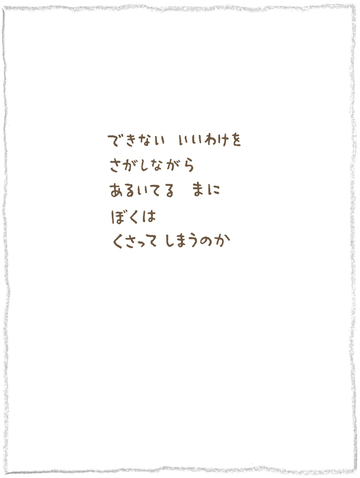 できない いいわけを
さがしながら
あるいてる まに
ぼくは
くさって しまうのか